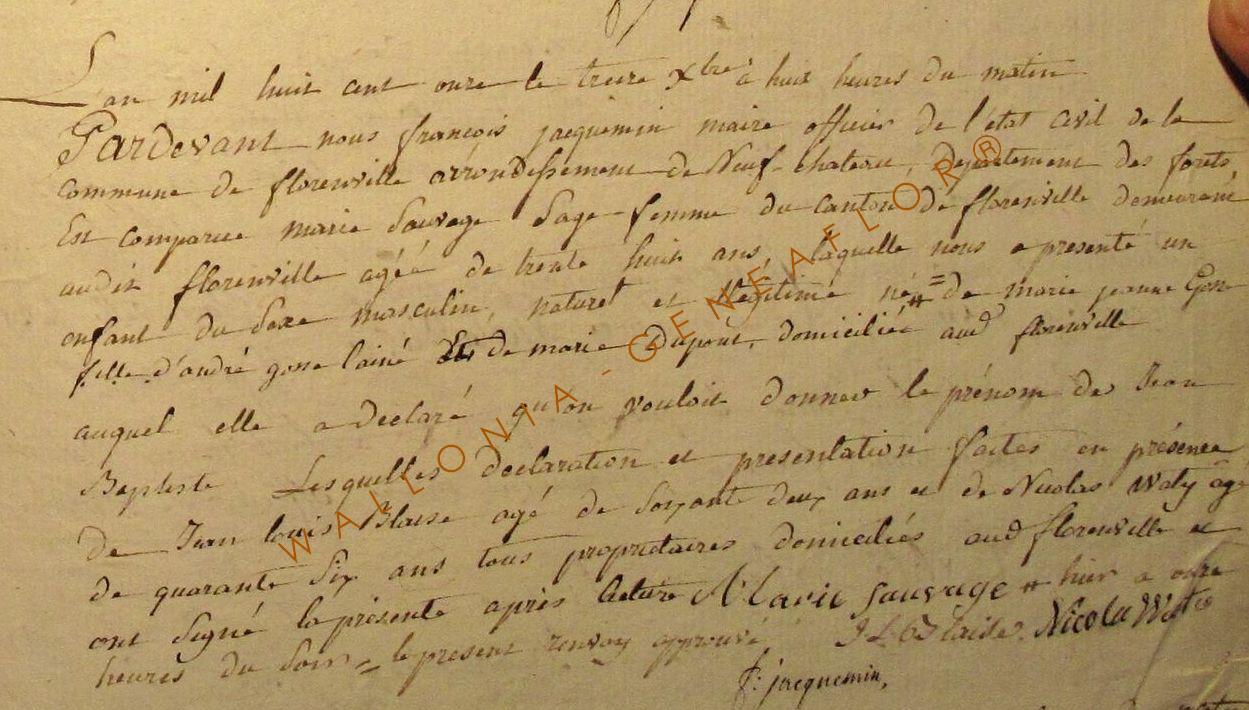 L'an mil huit cent onze le treize Xbre à huit heures du matin
Pardevant nous françois jacquemin maire officier de l'état civil de la
commune de florenville arrondissement de Neuf-chateau, departement des forets,
Est comparue marie Sauvage Sage-femme du canton de florenville demeurant
audit florenville agée de trente huit ans, laquelle nous a presenté un
enfant du Sexe masculin, naturel et illegitime né # = de marie jeanne Gosse
fille d'andré gosse lainé et de marie Dupont, domiciliée aud florenville
auquel elle a declaré qu'on vouloit donner le prénom de Jean
Baptiste Lesquelles declaration et presentation faites en présence
de Jean louis Blaise agé de Soixante deux ans et de Nicolas Waty agé
de quarante Six ans tous propriétaires domiciliés aud florenville et
ont Signé la présente après lecture Marie Sauvage # hier a onze
heures du Soir = le present renvoy approuvé J L Blaise Nicola
f: jacquemin,
WALLONIA - GENEAFLOR ®